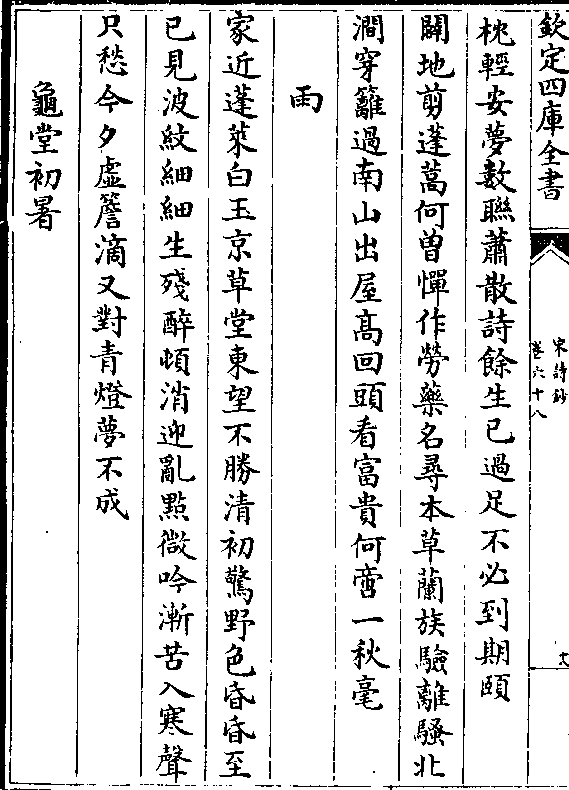 欽定四庫全書
宋詩鈔
卷六十八
枕輕安夢數聯蕭散詩餘生已過足不必到期頤
闢地剪蓬蒿何曽憚作勞藥名尋本草蘭族驗離騷北
澗穿籬過南山出屋髙回頭看富貴何啻一秋毫
雨
家近蓬萊白玉京草堂東望不勝清初驚野色昏昏至
已見波紋細細生殘醉頓消迎亂點微吟漸苦入寒聲
只愁今夕虛簷滴又對青燈夢不成
龜堂初暑